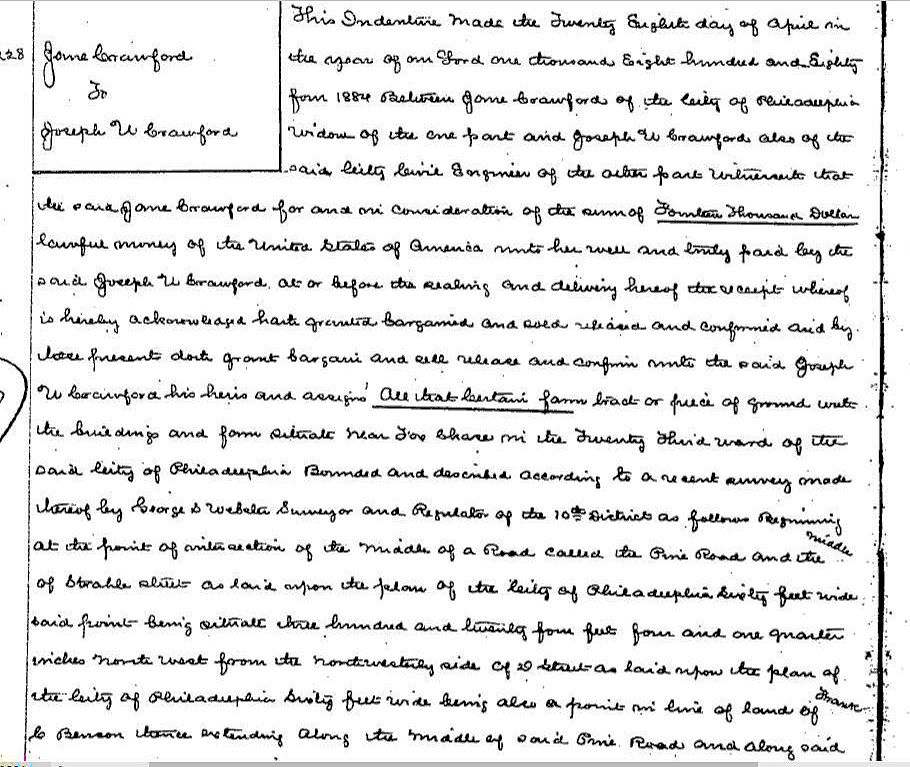 228
Jane Crawford
To
Joseph U Crawford
This Indenture Made the Twenty Eighth day of April in
the year of our Lord one thousand Eight hundred and Eighty
four 1884 Between Jane Crawford of the City of Philadelphia
Widow of the one part and Joseph U Crawford also of the
said City Civil Engineer of the other part Witnesseth that
the said Jane Crawford for and in consideration of the sum of Fourteen Thousand Dollars
lawful money of the United States of America unto her well and truly paid by the
said Joseph U Crawford at or before the sealing and delivery hereof the receipt whereof
is hereby acknowledged hath granted bargained and sold released and confirmed and by
these presents doth grant bargain and sell release and confirm unto the said Joseph
U Crawford his heirs and assigns All that Certain farm tract or piece of ground with
the buildings and farm situate near Fox Chase in the Twenty Third ward of the
said City of Philadelphia Bounded and described according to a recent survey made
thereof by George S Webster Surveyor and Regulator of the 10th District as follows Beginning
at the point of intersection of the Middle of a Road called the Pine Road and the middle
of Strahle street as laid upon the plan of the City of Philadelphia Sixty feet wide
said point being situate three hundred and twenty four feet four and one quarter
inches North west from the northwesterly side of 29 Street as laid upon the plan of
the City of Philadelphia Sixty feet wide being also a point in line of land of Frank
C Benson thence extending along the Middle of said Pine Road and along said